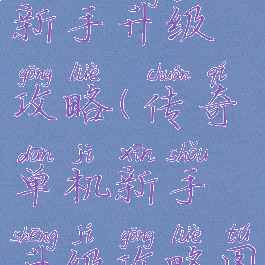 新手升级
gōng lüè chuán qí
攻略(传奇
dān jī xīn shǒu
单机新手
shēng jí gōng lüè tú
升级攻略图